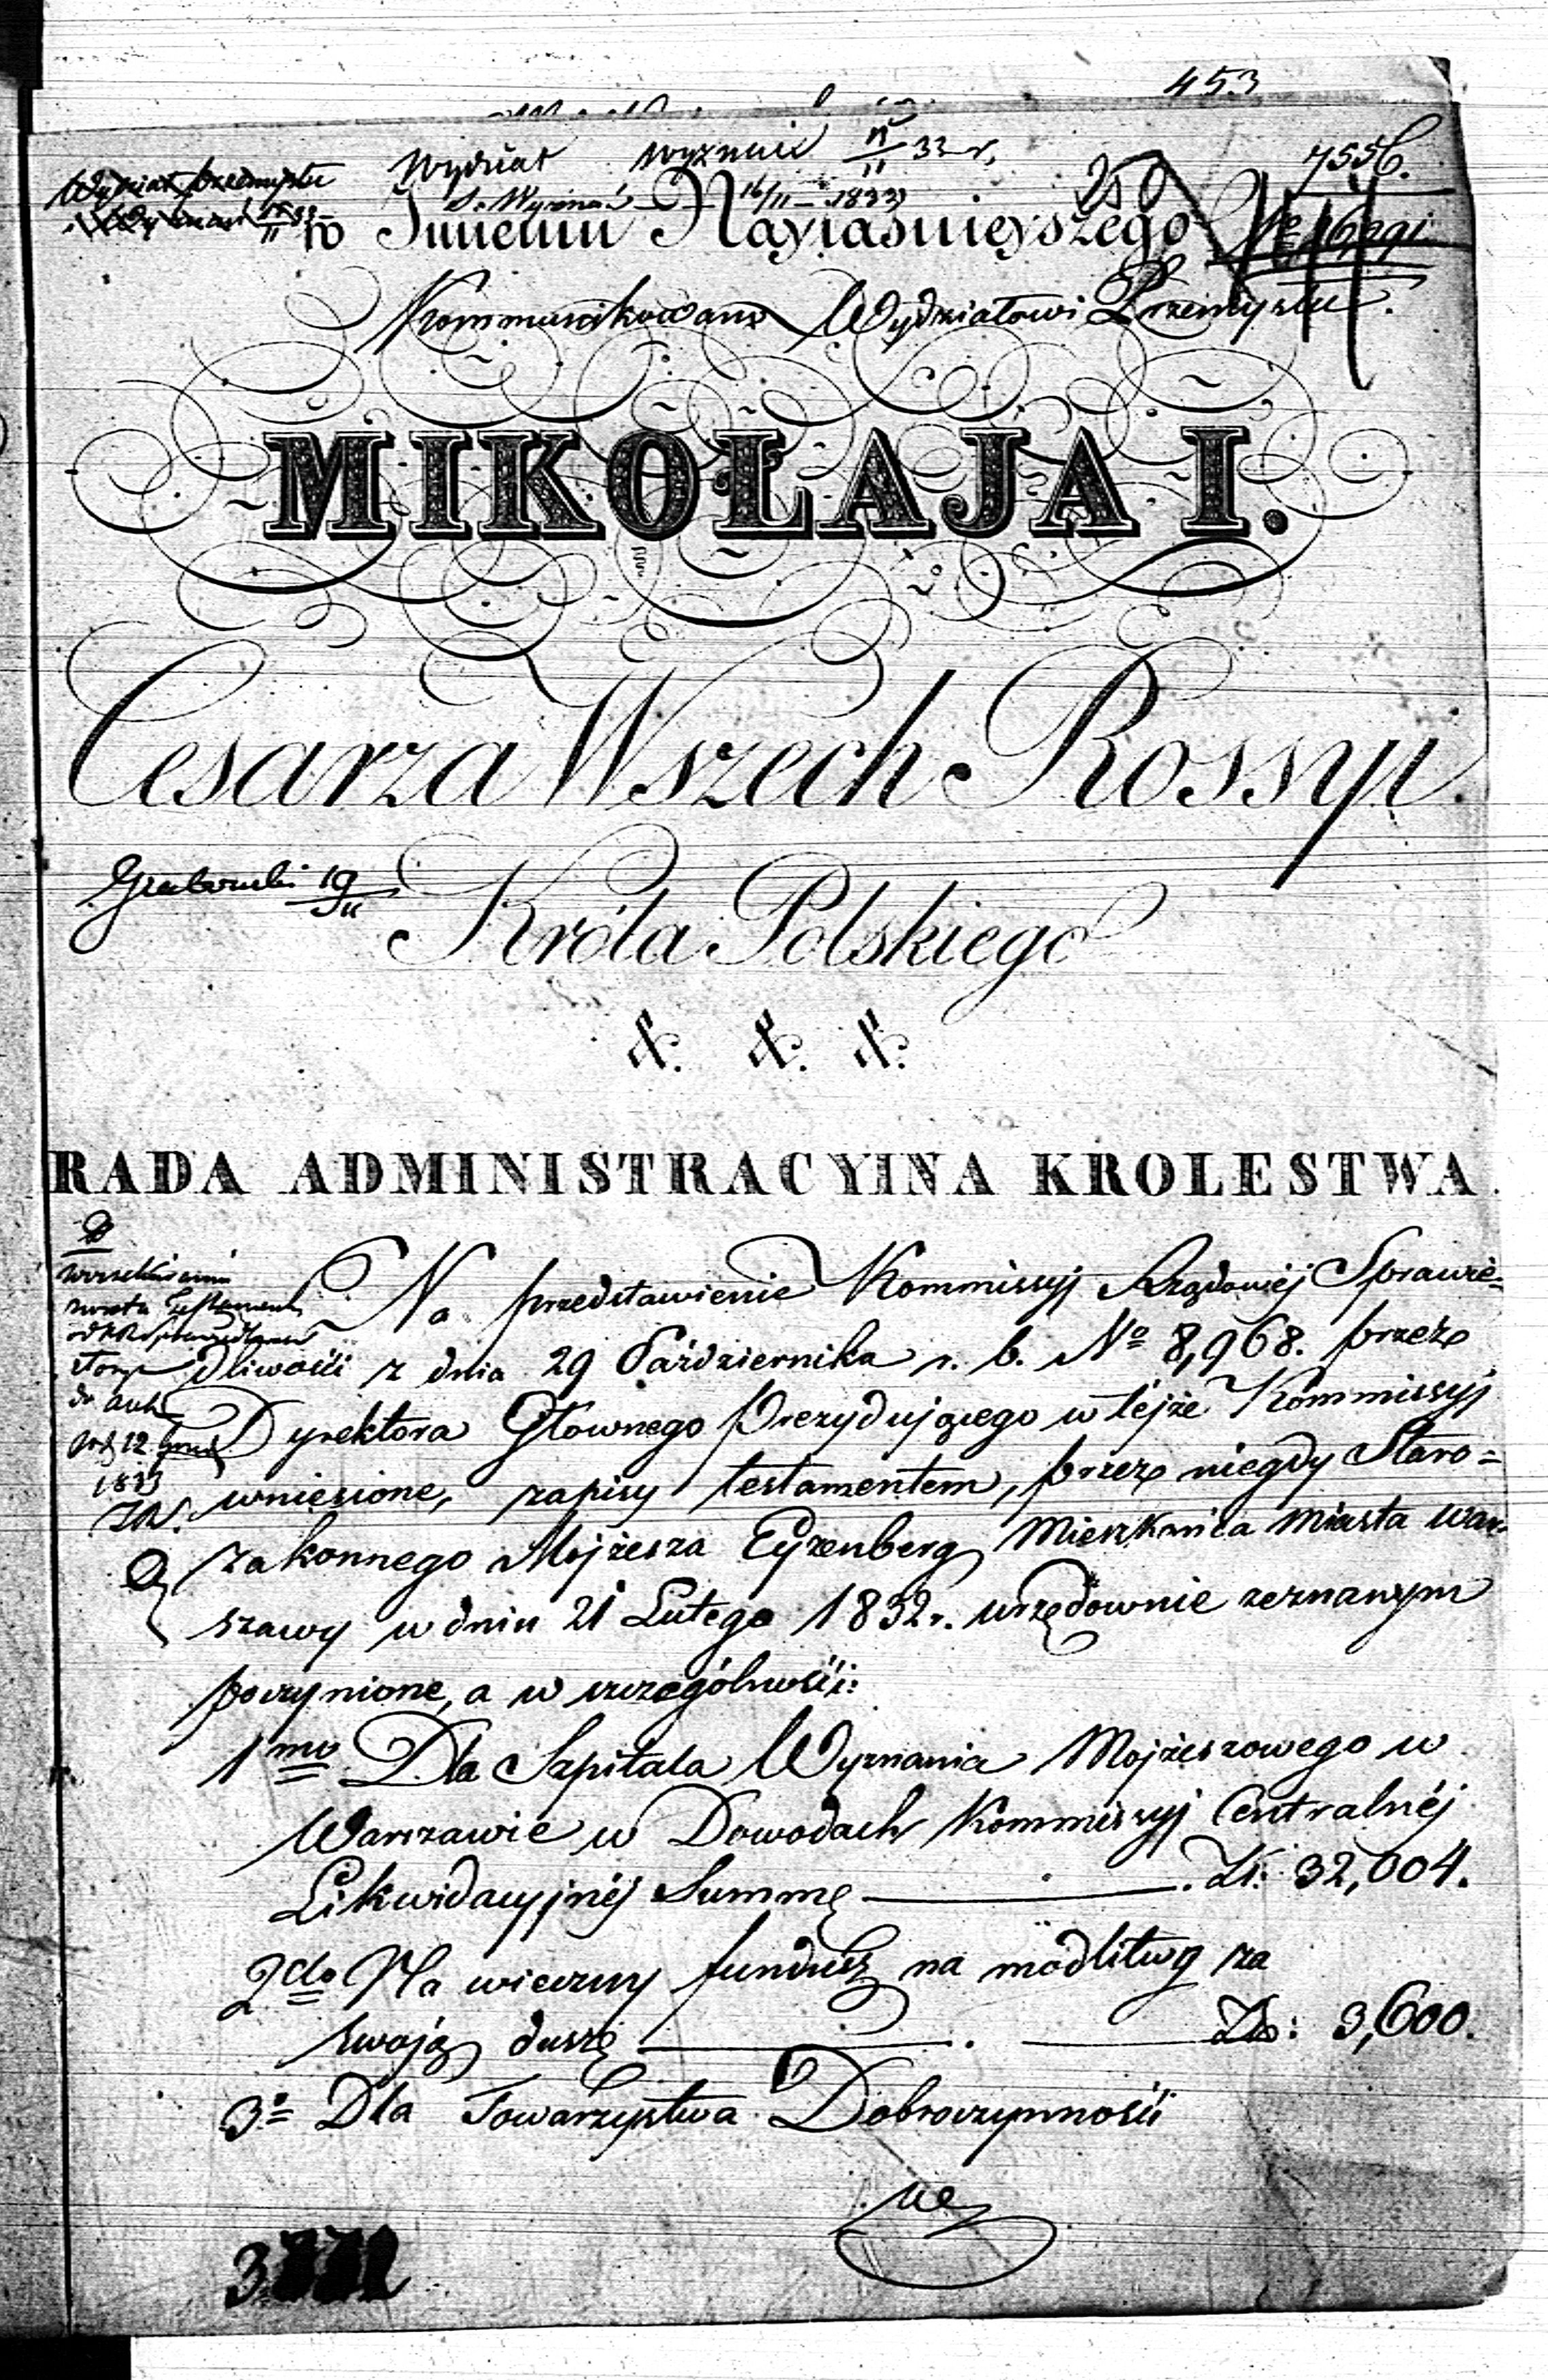 453
Wydział Wyznań 15/11 33 r.
7556.
Wydział Przemysłu
S. Wyznań 16/11 1833
250
W Imieniu Nayiaśnieyszego
Kommunikowane Wydziałowi Przemysłu.
MIKOŁAJA I.
Cesarza Wszech Rossyi.
Grabowski 19/11
Króla Polskiego
&. &. &.
RADA ADMINISTRACYINA KROLESTWA
Na przedstawienie Kommissyj Rządowéj Sprawie-
dliwości z dnia 29 Października r. b. Nº 8,968. przez
Dyrektora Głownego Prezydującego w téjże Kommissyj
wniesione, zapisy testamentem, przez niegdy Staro=
zakonnego Mojżesza Eyzenberg Mieszkańca Miasta War-
szawy w dniu 21 Lutego 1832 r. urzędownie zeznanym
poczynione, a w szczególności:
do aut
12 Grud
1833
1mo Dla Szpitala Wyznania Mojżeszowego w
Warszawie w Dowodach Kommissyj Centralnéj
Likwidacyjnéj Summę Zł: 32,004.
2do Na wieczny fundusz na modlitwę za
swoją duszę Zł: 3,600.
3º Dla Towarzystwa Dobroczynności